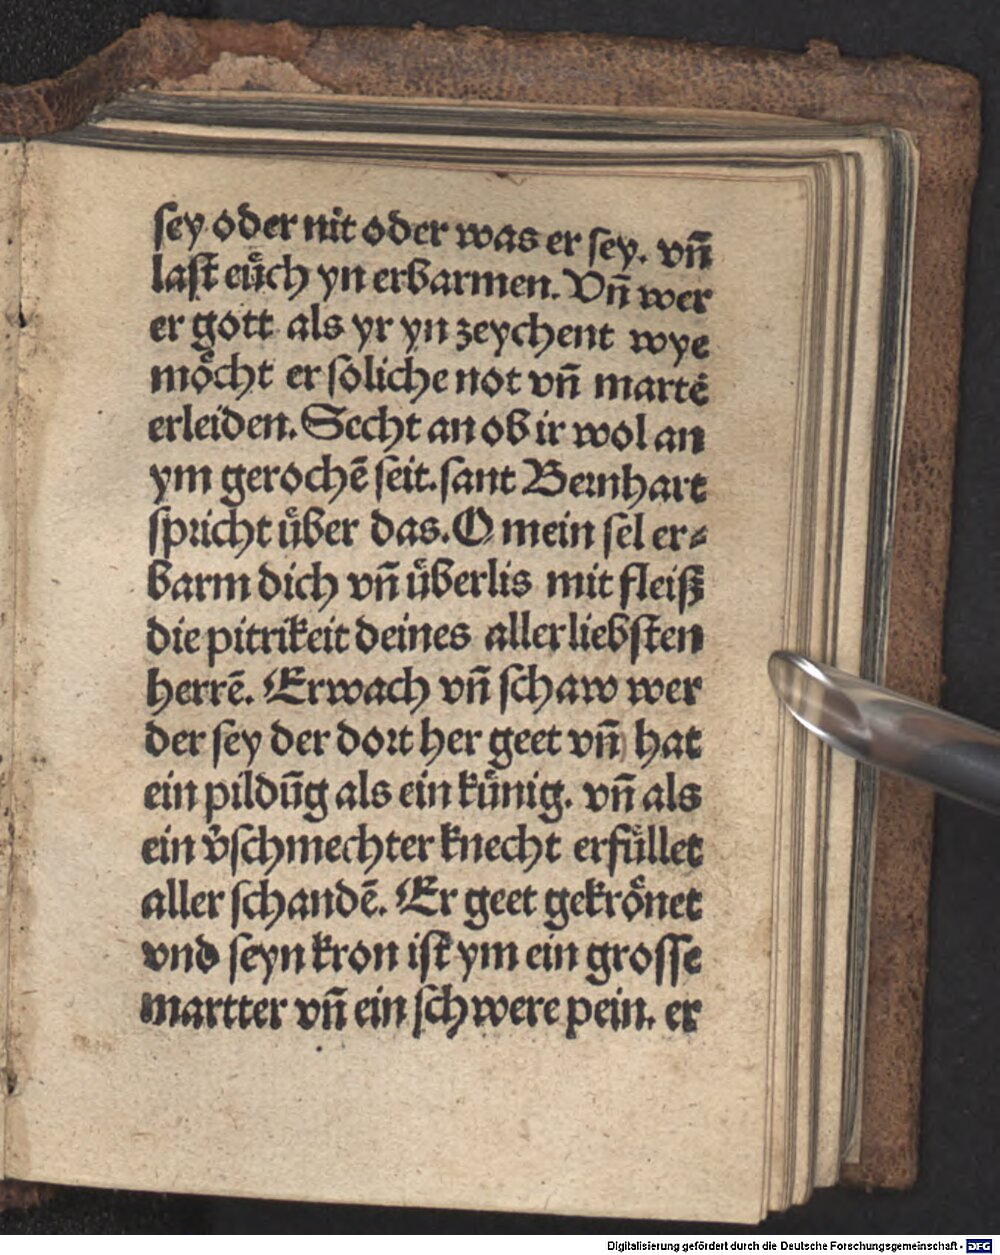 ſey oder nit oder was er ſey. vñ
laſt euͤch yn erbarmen. Vñ wer
er gott als yr yn zeychent wye
moͤcht er ſoliche not vñ marte
erleiden. Secht an ob ir wol an
ym gerochē ſeit. ſant Bernhart
ſpricht uͤber das. O mein ſel er⸗
barm dich vñ uͤberlis mit fleiß
die pitrikeit deines aller liebſten
herrē. Erwach vñ ſchaw wer
der ſey der dort her geet vñ hat
ein pildūg als ein kuͤnig. vñ als
ein v̓ſchmechter knecht erfuͤllet
aller ſchandē. Er geet gekroͤnet
vnd ſeyn kron iſt ym ein groſſe
martter vñ ein ſchwere pein. er
Digitalisierung gefördert durch die Deutsche Forschungsgemeinschaft - DFG